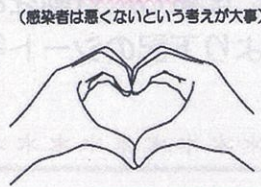 （感染者は悪くないという考えが大事）